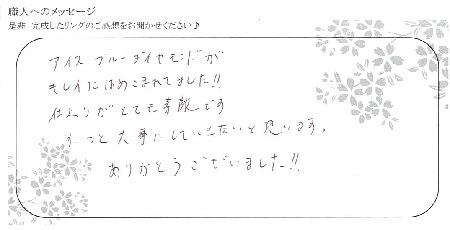 職人へのメッセージ
是非 完成したリングのご感想をお聞かせください♪
アイスブルーダイヤモンドが
キレイにはめこまれてました!!
仕上りがとても素敵です
ずっと大事にしていきたいと思います。
ありがとうございました!!